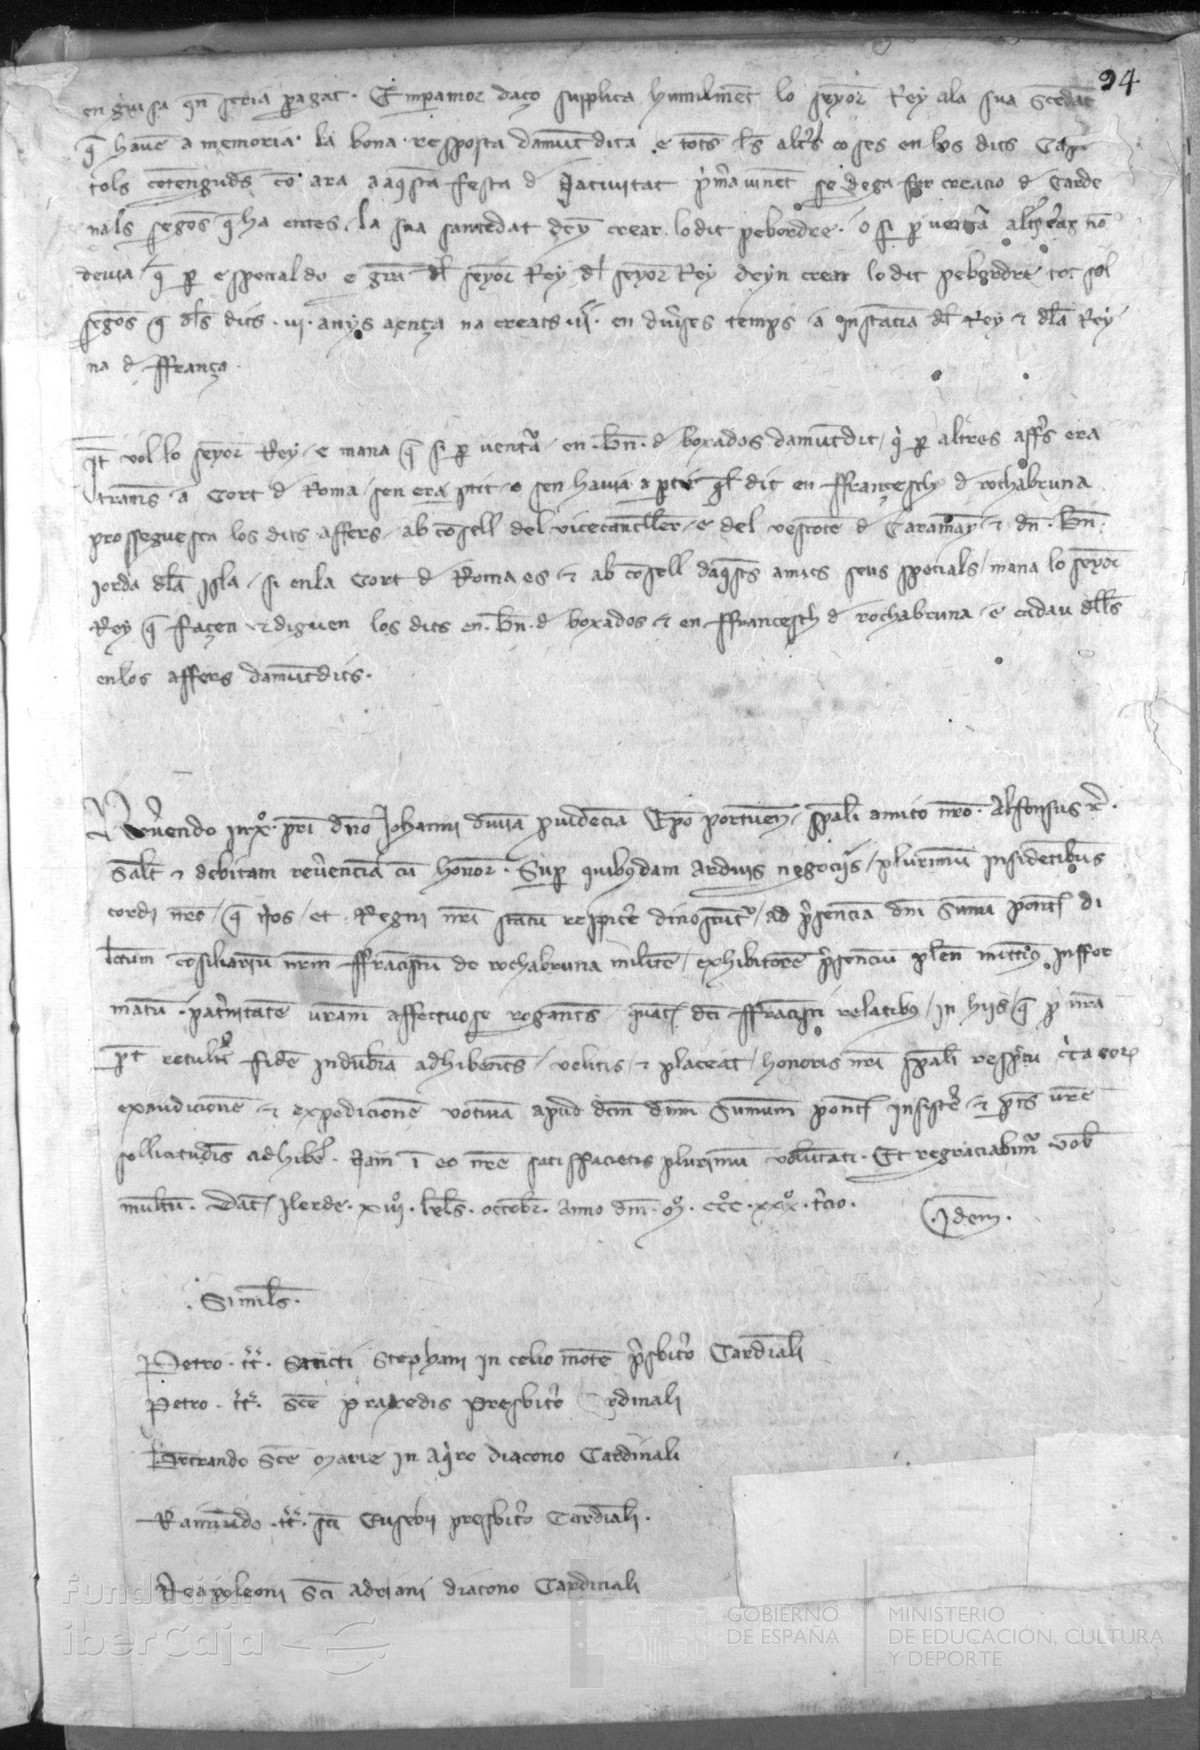 94
en guisa qn seria pagat. Emperamor daço supplica humilment lo senyor Rey ala sua sctedat
q haue a memoria la bona resposta damunt dita e totes les altres coses en los dits Capi
tols contenguds co ara a aqsta festa d Nativitat primera vinent se dega fer creacio d Carde
nals segons q ha entes la sua santedat deu crear lo dit pebordre. o si per ventura
devia q per especial do e gra del senyor Rey del senyor Rey deyn crear lo dit pebordre tot sol
segons q dls dits vi anys aença na creats iii en diuses temps a instacia del Rey e dla Rey
na d ffrança
It vol lo senyor Rey e mana q si per ventura en Bn d boxados damunt dit qi per altres affers era
trames a Cort d Roma sen era exit o sen hauia a partir ql dit en ffrancesch d rochabruna
prosseguescha los dits affers ab consell del vicecanceller e del vescomte d Caramayn e den Bn
Jorda dla Isla si en la Cort d Roma es e ab consell daqsts amics seus specials mana lo senyor
Rey q façen e diguen los dits en Bn d boxados e en ffrancesch d rochabruna e cascu dells
en los affers damunt dits.
Reverendo in xpo pri dno Johanni divina providecia Epo portuen spali amico nro Alfonsus etc.
Salt e debitam reverencia cu honor. Sup quibusdam arduis negociis plurimu insidetibus
cordi nro q nos et Regni nri statu respicere dinoscutur ad presencia dni sumi pontf di
lectum cosiliariu nrm ffraciscu de rochabruna milite exhibitore presenciu plen mittimus infor
matu. paternitate vram affectuose rogantes quat dci ffracisci relatibus in hiis q p nra
pt retulit fide indubia adhibentes velitis e placeat honoris nri spali respectu circa eor
exaudicione e expedicione votiva apud dcm dnm Sumum pontf insistere e ptes vre
sollicitudis adhibe. Nam i eo nre satisfacietis plurimu volutati. Et regraciabimur vob
multu. Dat Ilerde xiiiº kls octobr anno dni mº cccº xxxº tercio. Idem.
Similes.
Petro tt Sancti Stephani in celio monte presbitero Cardinali
Petro tt Sce praxedis presbitero Cardinali
Bertrando Sce Marie in Aqiro diacono Cardinali
Raimundo tt sci Eusebii presbitero Cardinali.
Neapoleoni Sci adriani diacono Cardinali
Fundación
iberCaja
GOBIERNO
DE ESPAÑA
MINISTERIO
DE EDUCACIÓN, CULTURA
Y DEPORTE